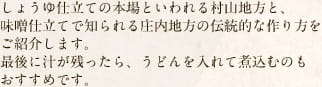 しょうゆ仕立ての本場といわれる村山地方と、
味噌仕立てで知られる庄内地方の伝統的な作り方を
ご紹介します。
最後に汁が残ったら、うどんを入れて煮込むのも
おすすめです。